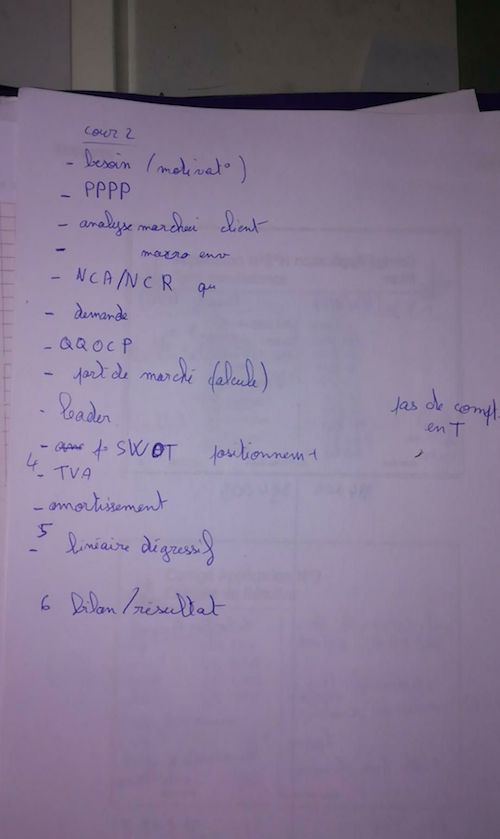 cour 2
- besoin (motivat°)
- PPPP
- analyse marcheú client
- macro env
- NCA/NCR qu
- demande
- QQOCP
- part de marché (alcule)
- leader
pas de compt.
en T
- f SWOT positionnem t
4 - TVA
- amortissement
5 - linéaire dégressif
6 bilan/résultat